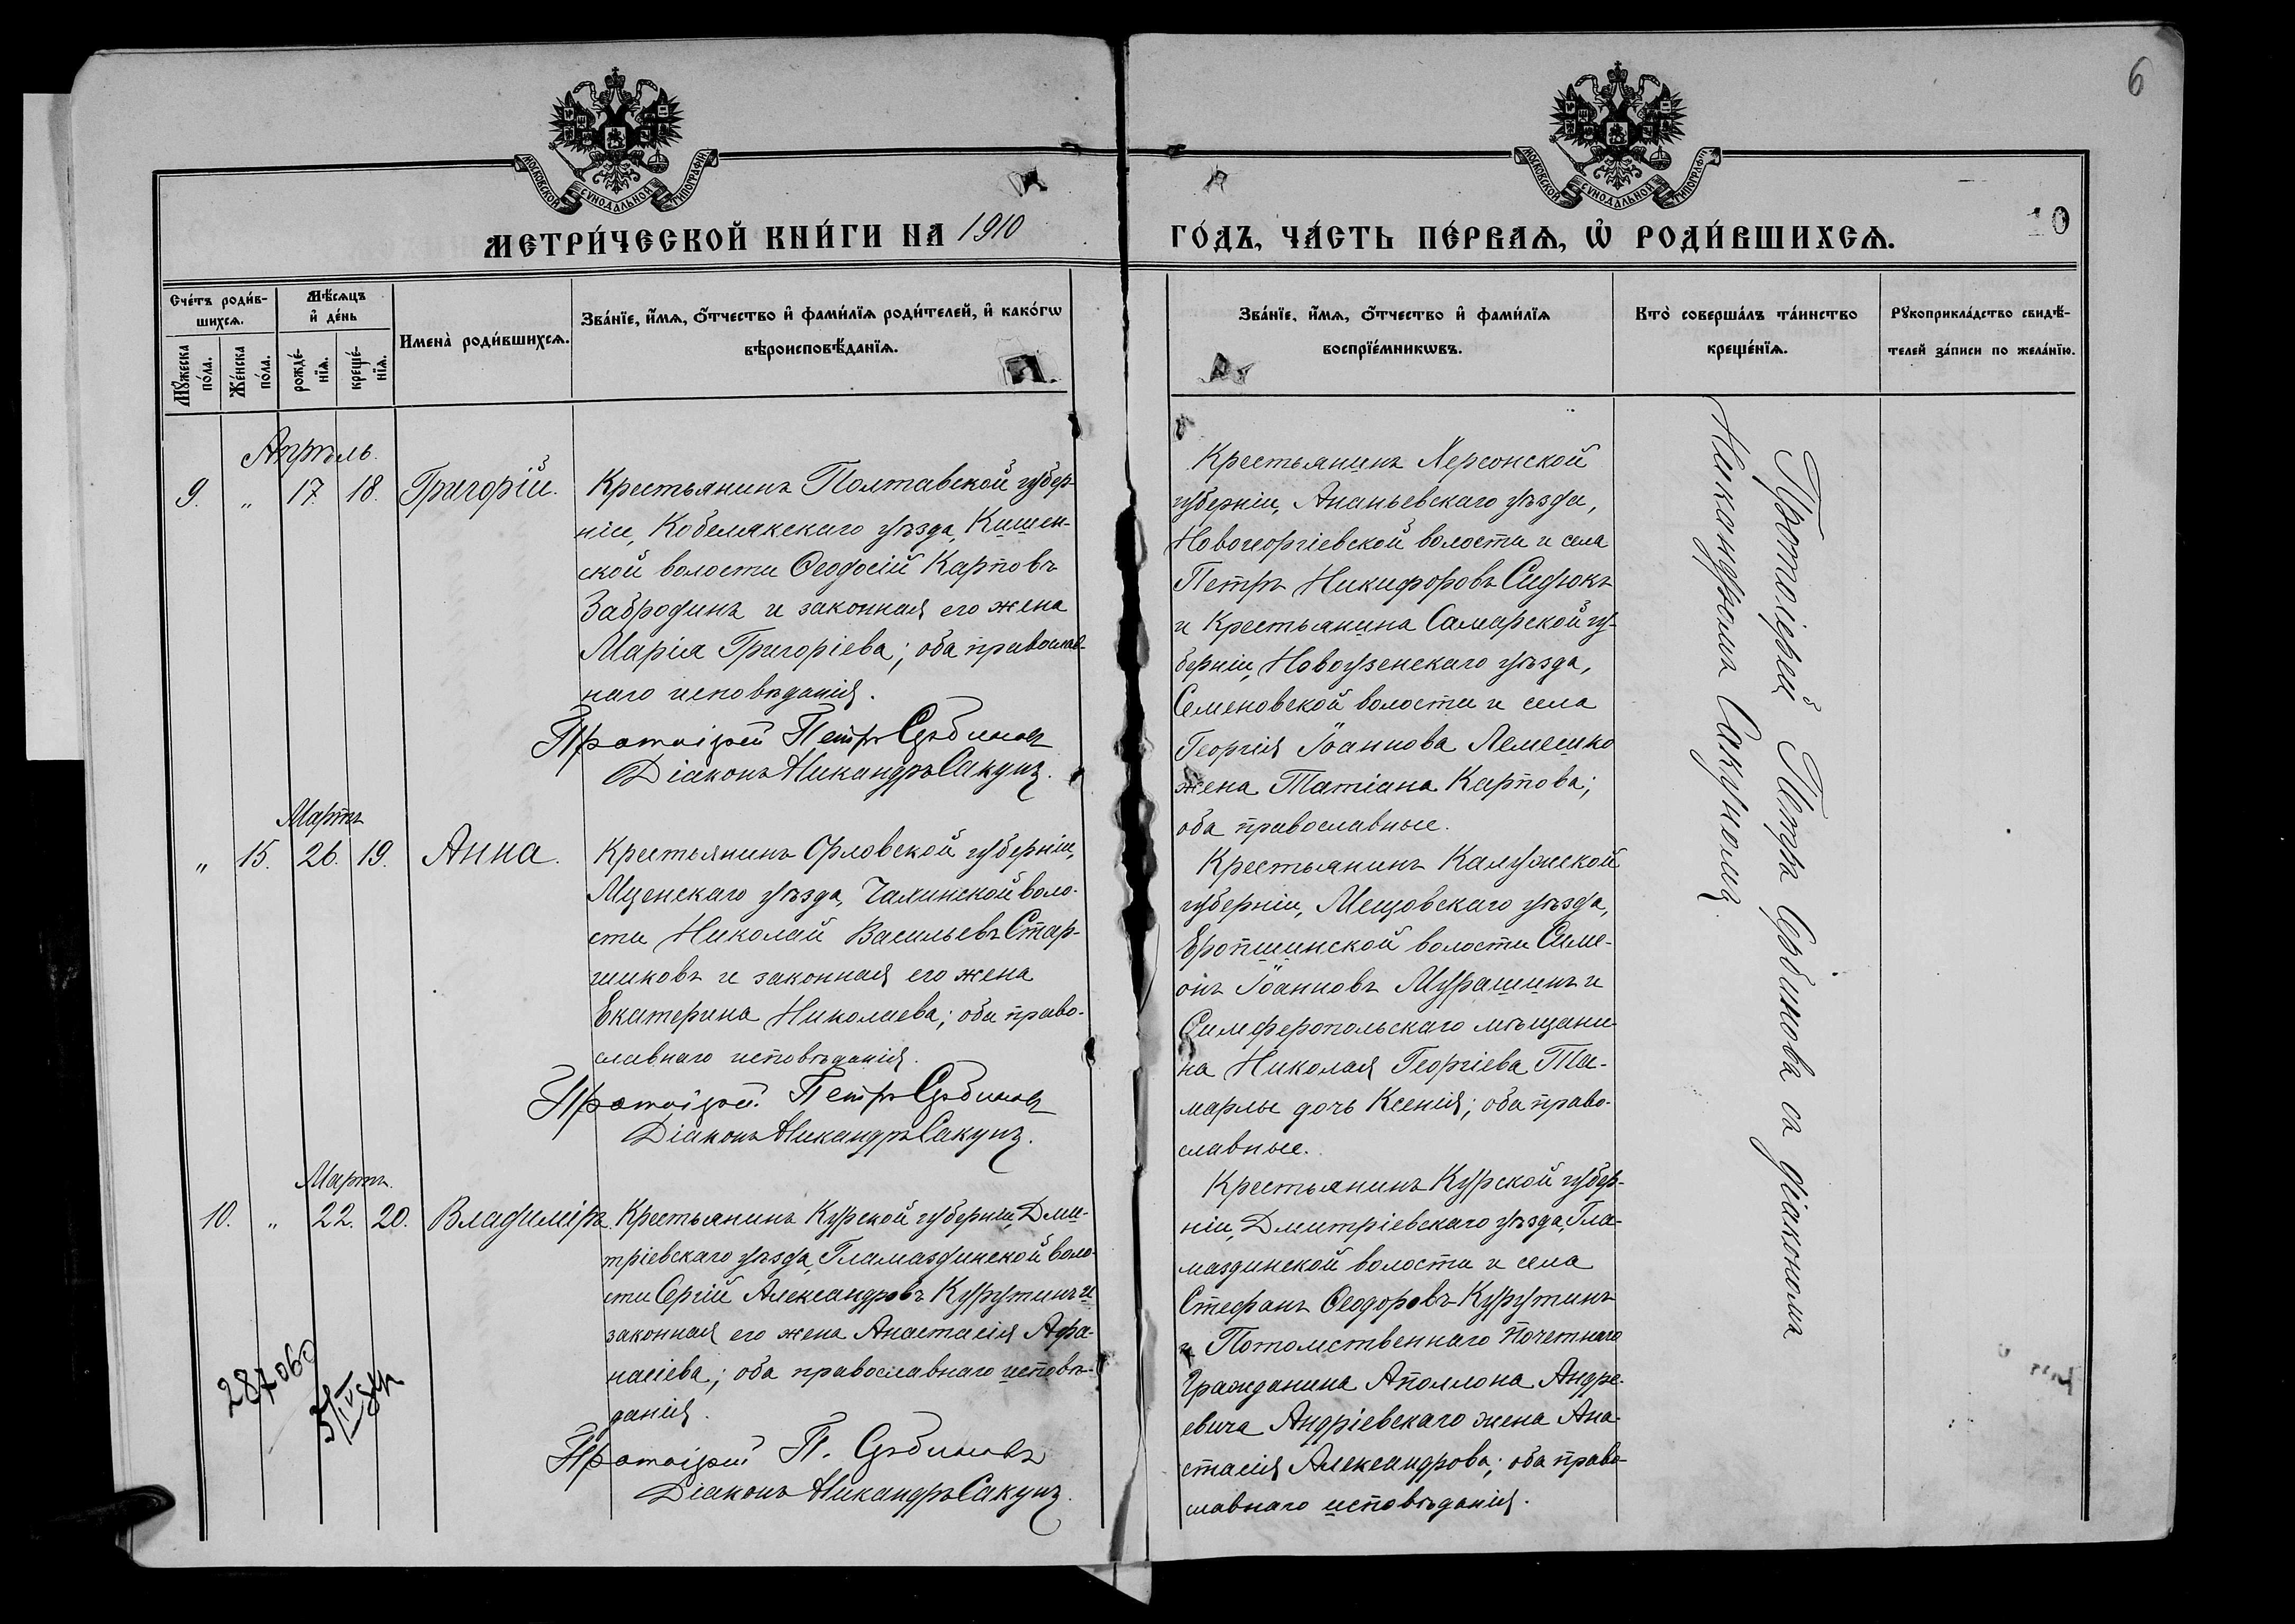 6
МОСКОВСКОЙ СѴНОДАЛЬНОЙ ТИПОГРАФІИ.
МОСКОВСКОЙ СѴНОДАЛЬНОЙ ТИПОГРАФІИ.
МЕТРИ́ЧЕСКОЙ КНИ́ГИ НА 1910
ГО́ДЪ, ЧА́СТЬ ПЕ́РВАѦ, Ѡ҆ РОДИ́ВШИХСѦ.
10
Сче́тъ роди́в-
шихсѧ.
Мꙋ́жеска
по́ла.
Же́нска
по́ла.
Мѣ́сѧцъ
и҆ де́нь
рожде́-
нїѧ.
креще́-
нїѧ.
Имена̀ роди́вшихсѧ.
Зва́нїе, и҆́мѧ, ѻ҆́тчество и҆ фами́лїѧ роди́телей, и҆ како́гѡ
вѣроисповѣ́данїѧ.
Зва́нїе, и҆́мѧ, ѻ҆́тчество и҆ фами́лїѧ
воспрїе́мникѡвъ.
Кто̀ соверша́лъ та́инство
креще́нїѧ.
Рꙋкоприкла́дство свидѣ́-
телей за́писи по жела́нїю.
Апрѣль.
9. „ 17. 18. Григорій.
Крестьянинъ Полтавской губер-
ніи, Кобелякскаго уѣзда, Кишен-
ской волости Ѳеодосій Карповъ
Забродинъ и законная его жена
Марія Григоріева; оба православ-
наго исповѣданія.
Протоіерей Петръ Сербиновъ
Діаконъ Никандръ Сакунъ.
Крестьянинъ Херсонской
губерніи, Ананьевскаго уѣзда,
Новогеоргіевской волости и села
Петръ Никифоровъ Сидюкъ
и Крестьянина Самарской гу-
берніи, Новоузенскаго уѣзда,
Семеновской волости и села
Георгія Іоаннова Лемешко
жена Татіана Карпова;
оба православные.
Протоіерей Петръ Сербиновъ съ діакономъ
Никандромъ Сакуномъ.
Мартъ
„ 15. 26. 19. Анна.
Крестьянинъ Орловской губерніи,
Мценскаго уѣзда, Чахинской воло-
сти Николай Васильевъ Стар-
шиковъ и законная его жена
Екатерина Николаева; оба право-
славнаго исповѣданія.
Протоіерей Петръ Сербиновъ
Діаконъ Никандръ Сакунъ.
Крестьянинъ Калужской
губерніи, Мещовскаго уѣзда,
Еропшинской волости Симе-
онъ Іоанновъ Мурашинъ и
Симферопольскаго мѣщани-
на Николая Георгіева Та-
марлы дочь Ксенія; оба право-
славные.
Мартъ.
10. „ 22. 20. Владиміръ.
Крестьянинъ Курской губерніи, Дми-
тріевскаго уѣзда, Гламаздинской воло-
сти Сергій Александровъ Курутинъ и
законная его жена Анастасія Афа-
насіева; оба православнаго исповѣ-
данія.
Протоіерей П. Сербиновъ
Діаконъ Никандръ Сакунъ.
Крестьянинъ Курской губер-
ніи, Дмитріевскаго уѣзда, Гла-
маздинской волости и села
Стефанъ Ѳеодоровъ Курутинъ
и Потомственнаго почетнаго
гражданина Аполлона Андре-
евича Андріевскаго жена Ана-
стасія Александрова; оба право-
славнаго исповѣданія.
287060